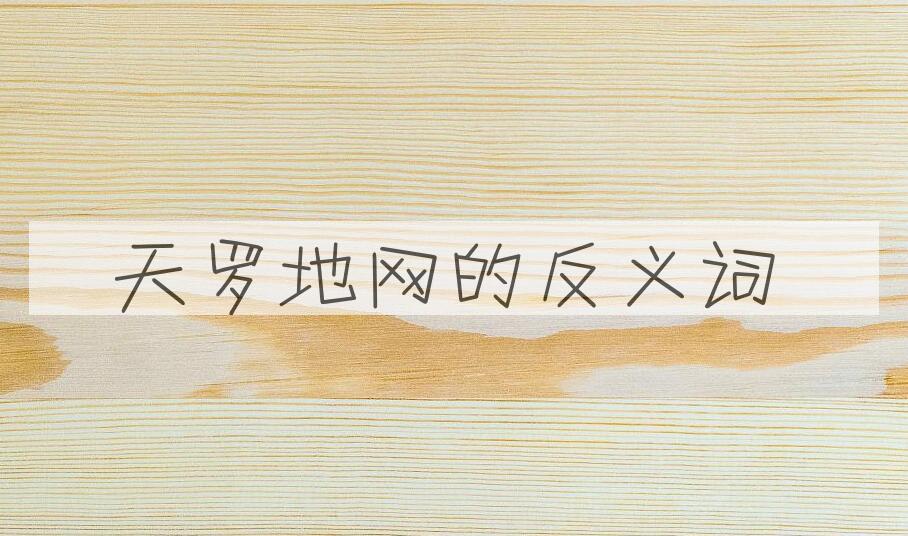 天罗地网的反义词